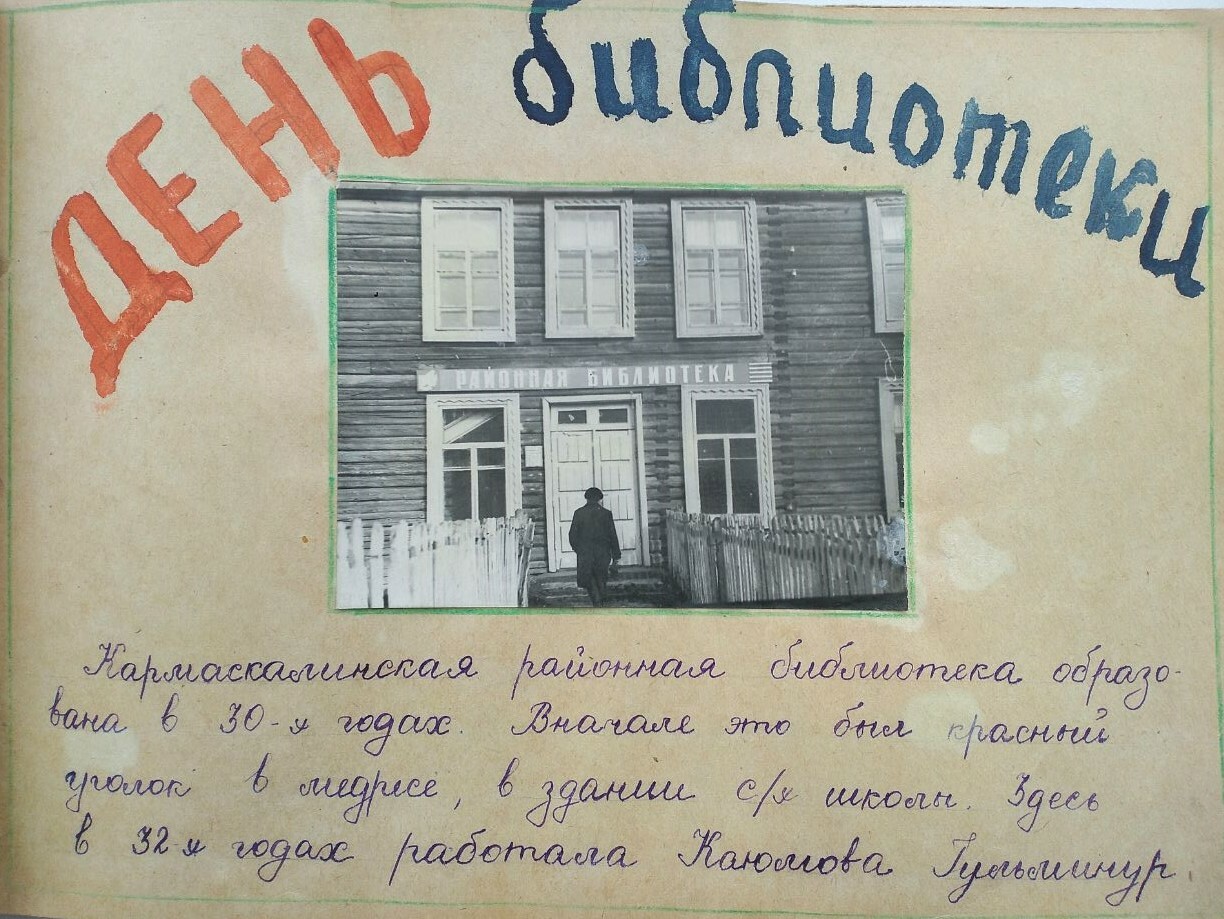 ДЕНЬ библиотеки
РАЙОННАЯ БИБЛИОТЕКА
Кармаскалинская районная библиотека образо-
вана в 30-х годах. Вначале это был красный
уголок в медресе, в здании с/х школы. Здесь
в 32-х годах работала Каюмова Гульминур.